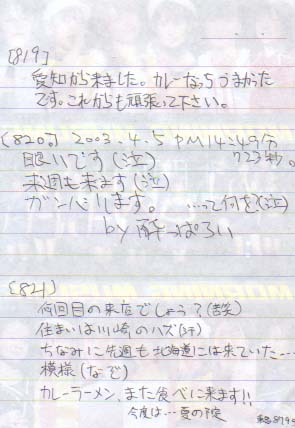 [819]
愛知から来ました。カレーなっちうまかった
です。これからも頑張って下さい。
[820。] 2003.4.5 PM14:49分
眠いです(泣) 秒。
来週も来ます(泣)
ガンバリます。 …って何を?(泣)
by 酔っぱらい
[821]
何回目の来店でしょう?(苦笑)
住まいは川崎のハズ(汗)
ちなみに先週も北海道には来ていた……
模様
カレーラーメン、また食べに来ます!!
今度は…夏の予定